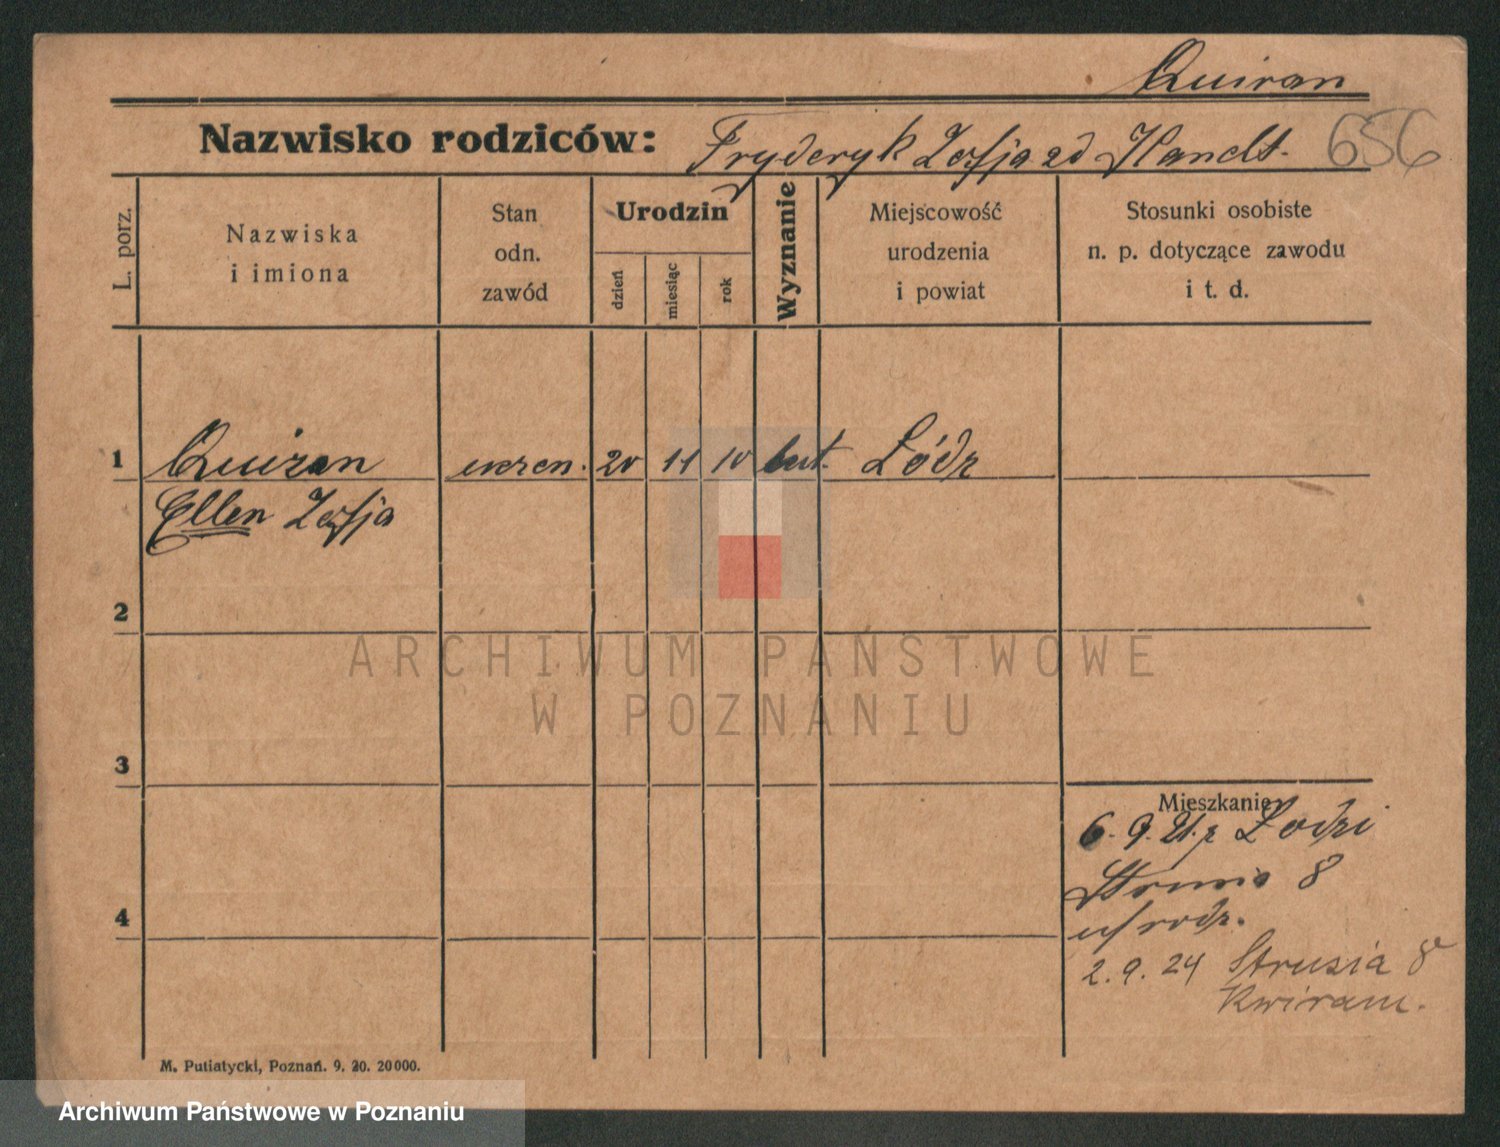 Quiran
Nazwisko rodziców: Fryderyk Zofja zd Handt. 656
L. porz.
Nazwiska
i imiona
Stan
odn.
zawód
Urodzin
dzień
miesiąc
rok
Wyznanie
Miejscowość
urodzenia
i powiat
Stosunki osobiste
n. p. dotyczące zawodu
i t. d.
1 Quiran uczen. 20 11 10 Łódz
Ellen Zofja
2
ARCHIWUM PAŃSTWOWE
W POZNANIU
3
Mieszkanie
6. 9. 21. z Łodzi
8
4
2. 9. 24 Strusia 8
Kwiram.
M. Putiatycki, Poznań. 9. 20. 20000.
Archiwum Państwowe w Poznaniu